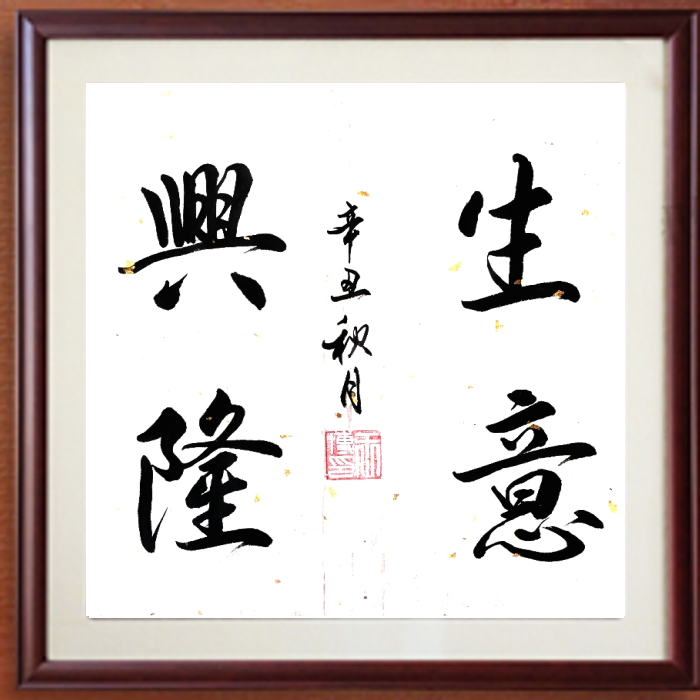 生意
興隆
辛丑秋月